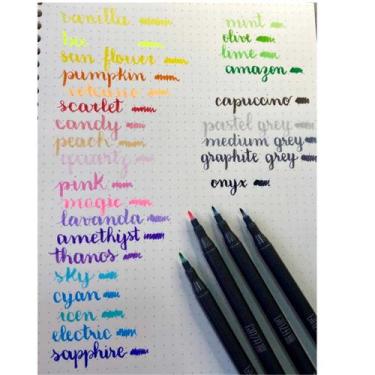 vanilla
sun flower
pumpkin
volcano
scarlet
candy
peach
quartz
pink
magic
lavanda
amethyst
thanos
sky
cyan
icen
electric
sapphire
mint
olive
lime
amazon
capuccino
pastel grey
medium grey
graphite grey
onyx